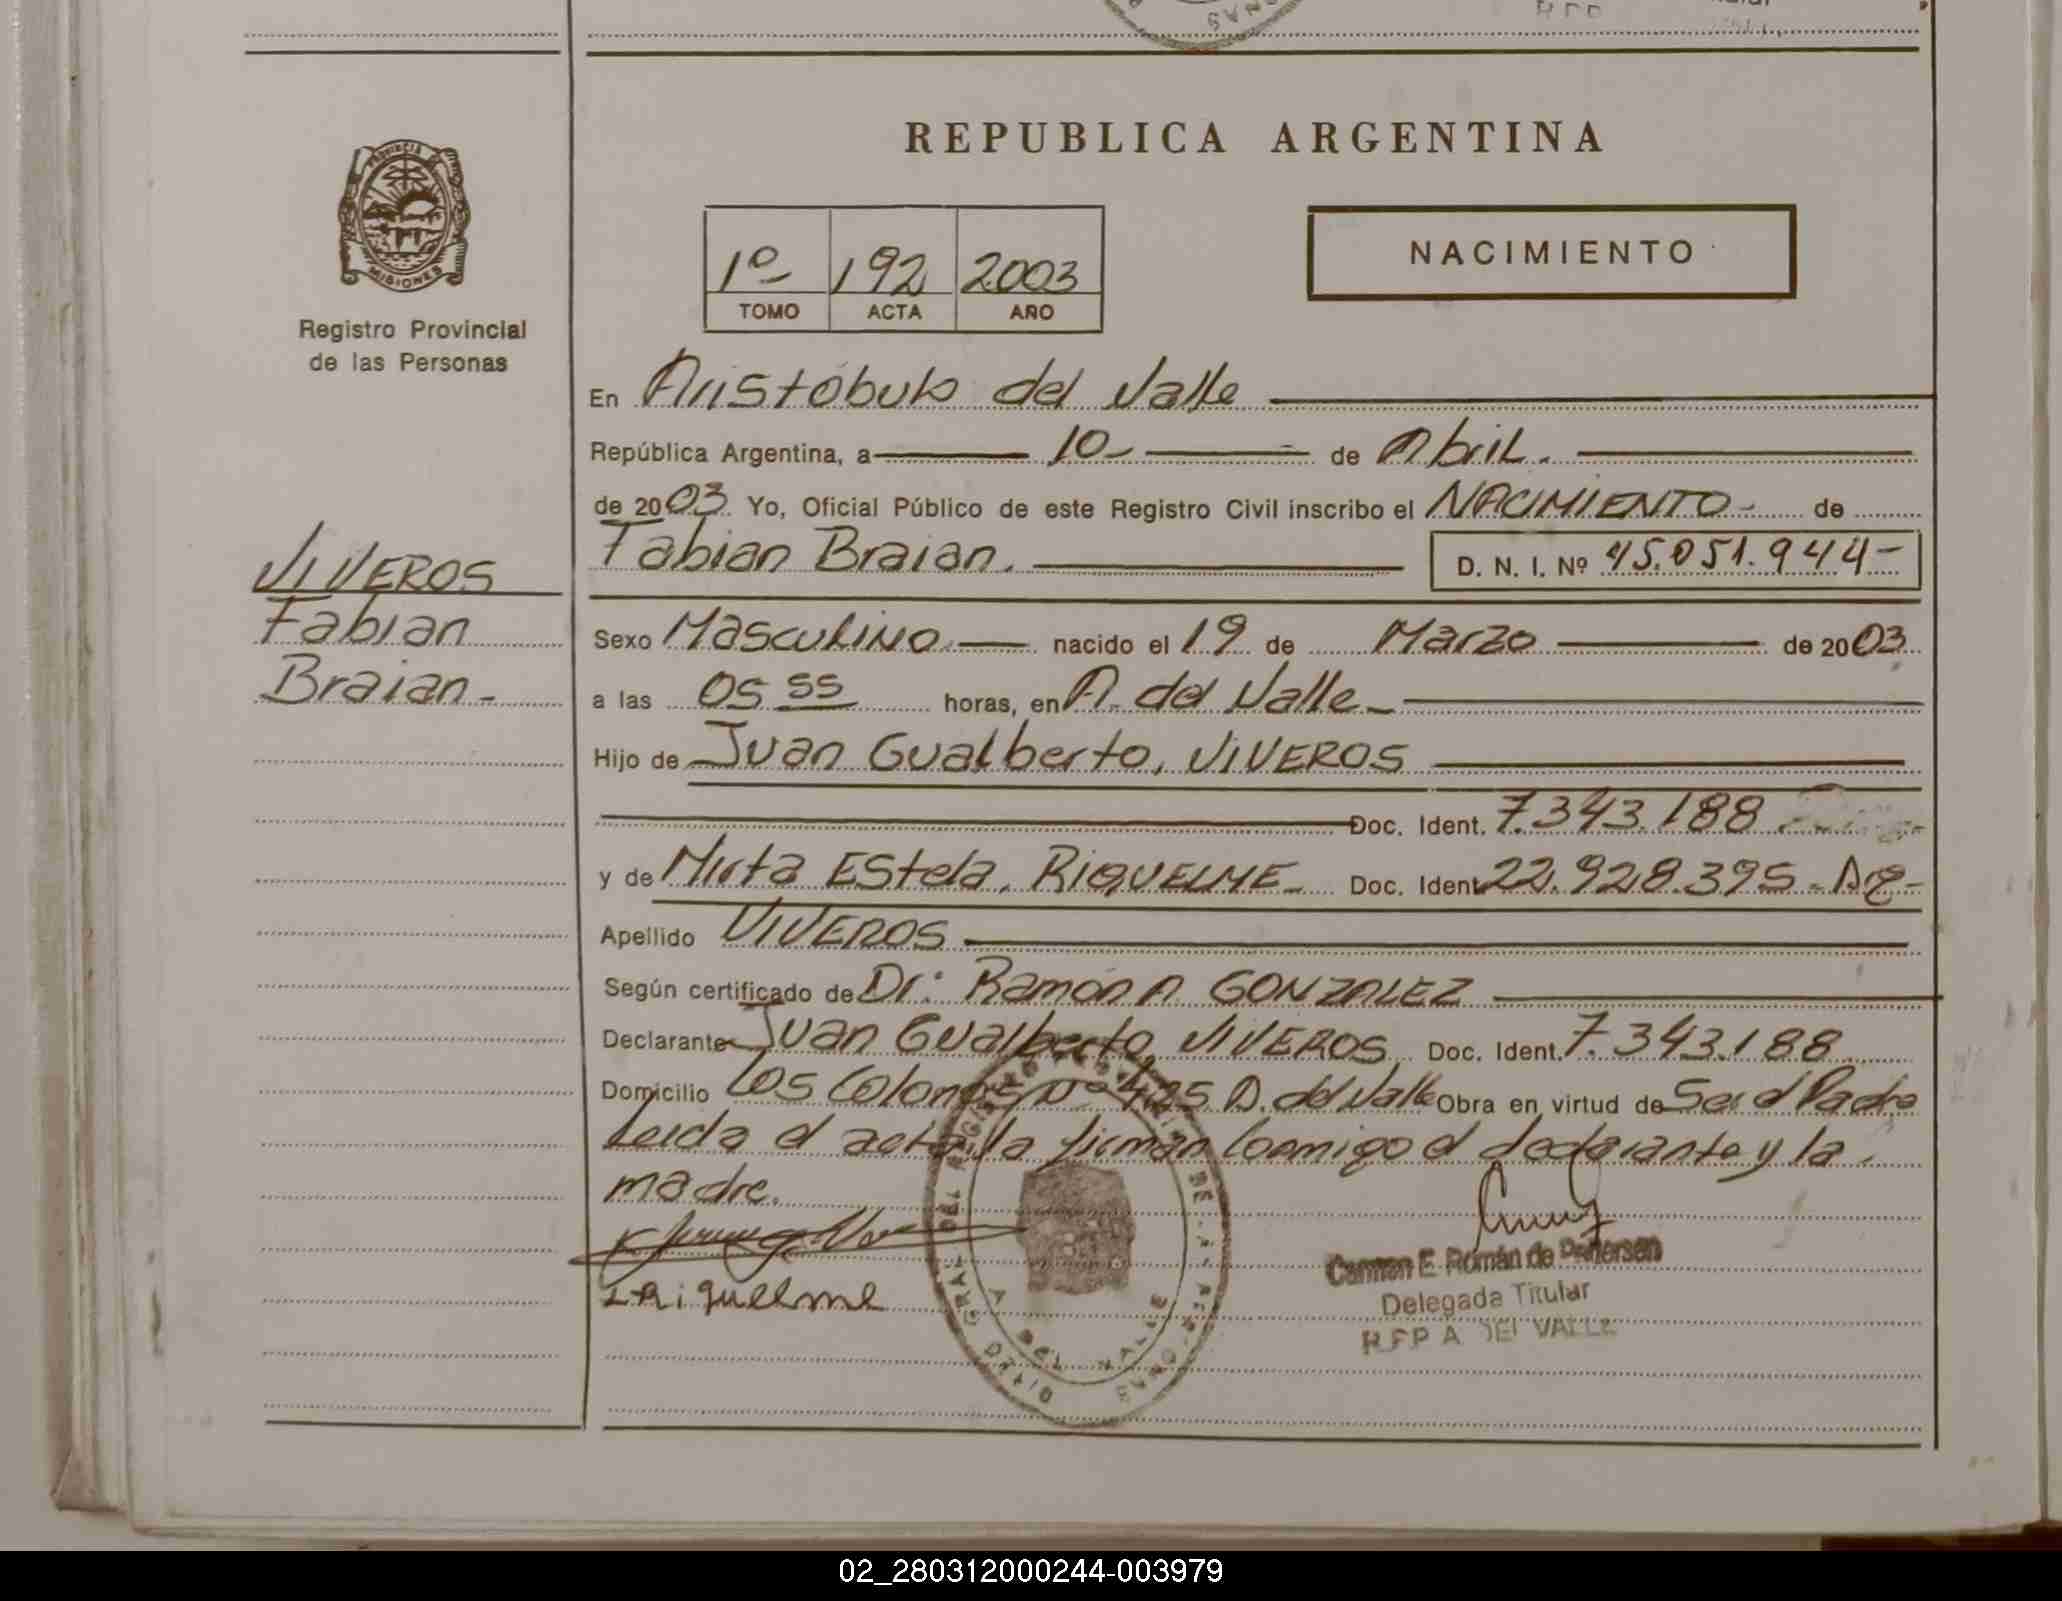 REPUBLICA ARGENTINA
PROVINCIA DE
MISIONES
Registro Provincial
de las Personas
1º 192 2003
TOMO ACTA AÑO
NACIMIENTO
En Aristóbulo del Valle
República Argentina, a 10- de Abril.
de 2003. Yo, Oficial Público de este Registro Civil inscribo el NACIMIENTO- de
Fabian Braian. D. N. I. Nº 45.051.944-
VIVEROS
Fabian
Braian.-
Sexo Masculino.- nacido el 19 de Marzo de 2003
a las 05 55 horas, en A. del Valle.-
Hijo de Juan Gualberto, VIVEROS
Doc. Ident. 7.343.188
y de Mirta EStela, RIQUELME- Doc. Ident 22.928.395.- Arg-
Apellido VIVEROS
Según certificado de Dr: Ramón A GONZALEZ
Declarante Juan Gualberto, VIVEROS Doc. Ident. 7.343.188
Domicilio Los Colonos Nº 425 A. del Valle Obra en virtud de Ser el Padre
Leida el acta la firman Conmigo el declarante y la
madre.
Riquelme
Carmen E. Román de Petersen
Delegada Titular
R.P.P A DEL VALLE
02_280312000244-003979